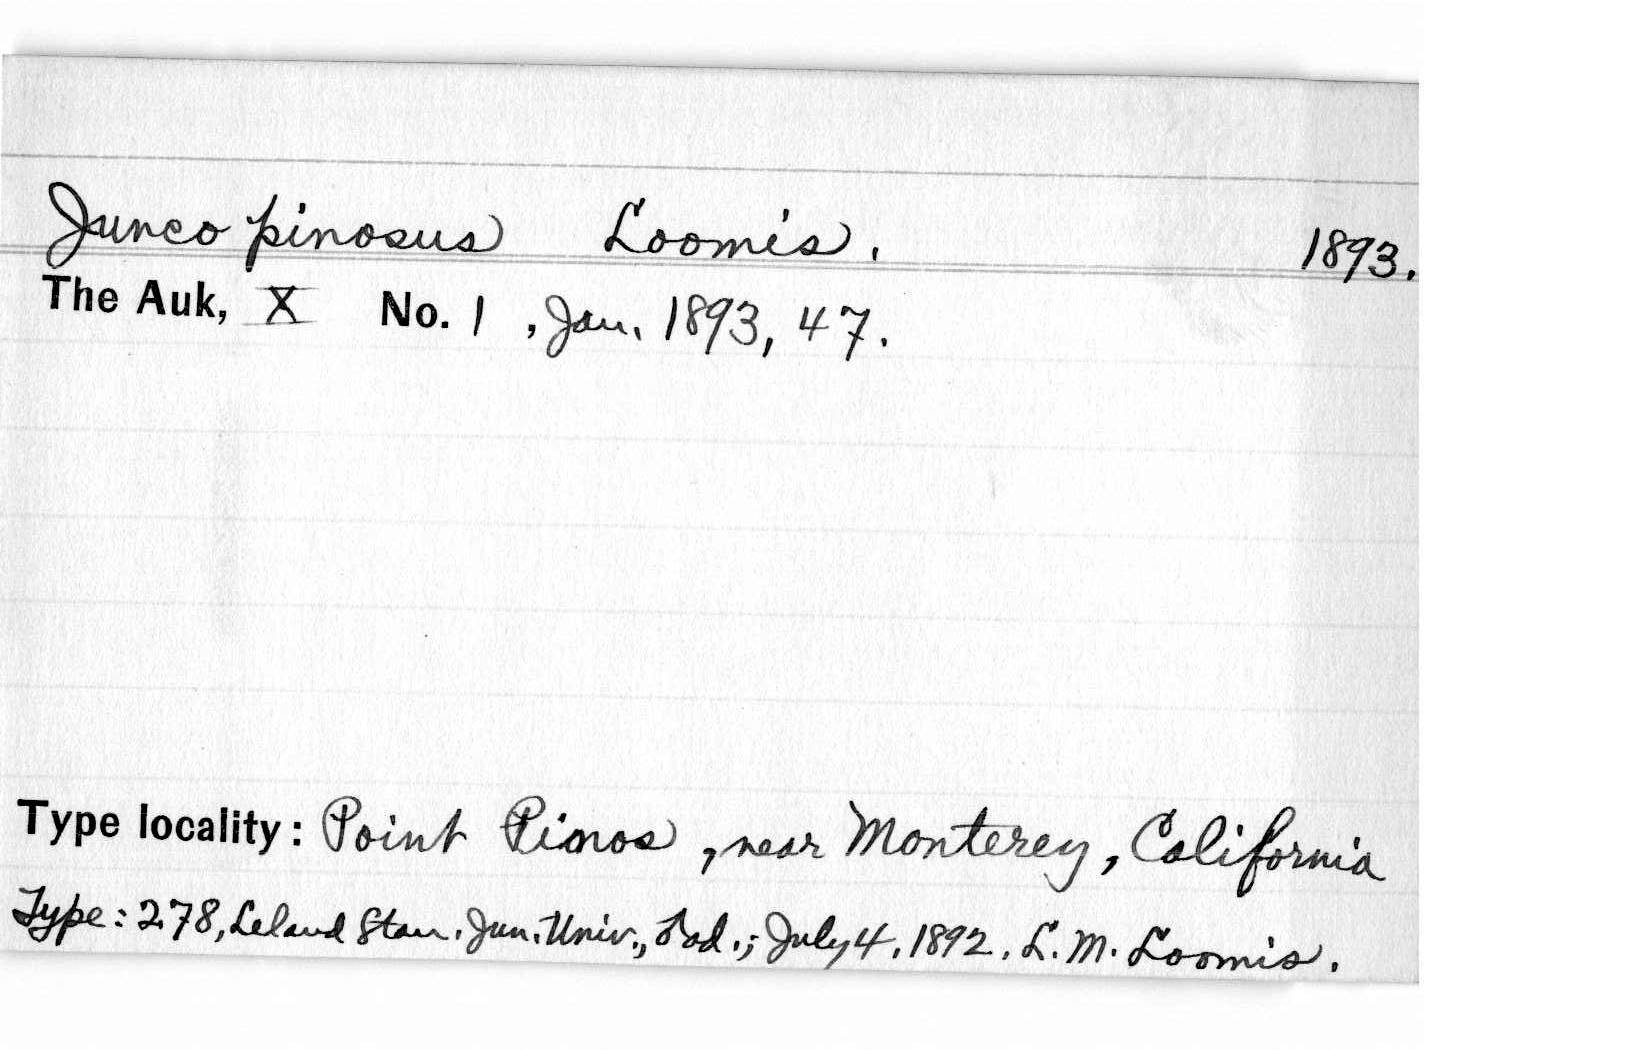 Junco pinosus Loomis. 1893.
The Auk, X No. 1, Jan. 1893, 47.
Type locality: Point Pinos, near Monterey, California
Type: 278, Leland Stan. Jun. Univ., ad.; July 4, 1892. L. M. Loomis.